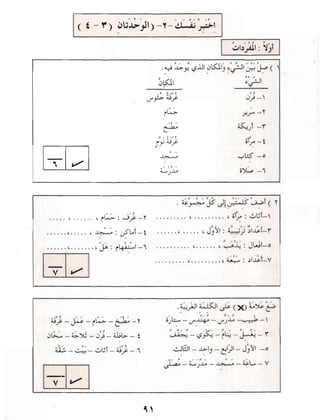 اِخْتَبِرْ نَفْسَكَ -٢- (الوَحْدَتَانِ ( ٣ - ٤ )
أوّلاً : المُفْرَدَات
١) صِلْ بَيْنَ الشَّيْءِ وَالمَكَانِ الَّذِي يُوجَدُ فِيهِ.
الشَّيْءُ المَكَانُ
١- فُرْن غُرْفَةُ جُلُوسٍ
٢- سَرِير حَمَّام
٣- أَرِيكَة مَطْبَخ
٤- مِرْآة غُرْفَةُ نَوْمٍ
٥- كِتَاب مَسْجِد
٦- صَلَاة مَدْرَسَة
٦
٢) أَضِفْ كَلِمَتَيْنِ إِلَى كُلِّ مَجْمُوعَةٍ .
١- أثاث : مِرْآة، .......... ، .......... ٢- غُرَف : حَمَّام، ....... ، .......
٣- أعْدَادٌ تَرْتِيبِيَّة : الأوَّل، ....... ، ....... ٤- أماكِن : مَسْجِد، ....... ، .......
٥- أفعال : يَذْهَبُ، .......... ، .......... ٦- اسْتِفْهَام : هَلْ، ....... ، .......
٧- أعْدَاد : سَبْعَة، .......... ، ..........
٧
ضَعْ عَلَامَةَ (✗) عَلَى الكَلِمَةِ الغَرِيبَةِ.
١- طَبِيب - مُدَرِّس - مُهَنْدِس - سِتَارَة ٢- مَطْبَخ - حَمَّام - عَمَل - غُرْفَة
٣- يَغْسِلُ - يَنَامُ - يَكْوِي - يُجَفِّفُ ٤- حَافِلَة - فُرْن - ثَلَّاجَة - سَخَّان
٥- الأوَّل - الرَّابِع - وَاحِد - الثَّالِث ٦- غُرْفَة - أثَاث - بَيْت - شَقَّة
٧- سَاعَة - مَسْجِد - مَدْرَسَة - مُصَلَّى
٧
٩١